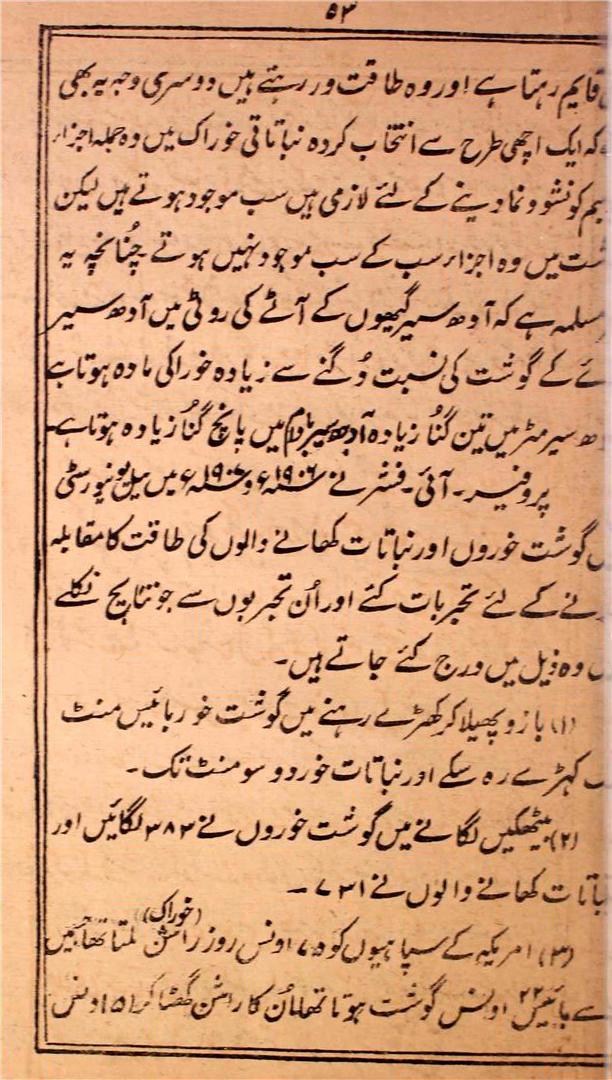 ۵۳
قایم رہتا ہے اور وہ طاقت ور رہتے ہیں دوسری وجہ یہ بھی
کہ ایک اچھی طرح سے انتخاب کردہ نباتاتی خوراک میں وہ جملہ اجزاء
کو نشو و نما دینے کے لئے لازمی ہیں سب موجود ہوتے ہیں لیکن
میں وہ اجزاء سب کے سب موجود نہیں ہوتے چُنانچہ یہ
مسلمہ ہے کہ آدھ سیر گیہوں کے آٹے کی روٹی میں آدھ سیر
کے گوشت کی نسبت دُگنے سے زیادہ خوراکی مادہ ہوتا ہے
سیر مٹر میں تین گُنا زیادہ آدھ سیر بادام میں پانچ گُنا زیادہ ہوتا ہے۔
پروفیسر۔ آئی۔ فشر نے ۱۹۰۶ء و ۱۹۰۷ء میں ییل یونیورسٹی
گوشت خوروں اور نباتات کھانے والوں کی طاقت کا مقابلہ
نے کے لئے تجربات کئے اور اُن تجربوں سے جو نتایج نکلے
وہ ذیل میں درج کئے جاتے ہیں۔
(۱) بازو پھیلا کر کھڑے رہنے میں گوشت خور بائیس منٹ
کہڑے رہ سکے اور نباتات خور دو سو منٹ تک۔
(۲) بیٹھکیں لگانے میں گوشت خوروں نے ۳۸۳ لگائیں اور
کھانے والوں نے ۷۳۱۔
(۳) امریکہ کے سپاہیوں کو ۷۵ اونس روز راشن (خوراک) ملتا تھا جس میں
سے بائیس ۲۲ اونس گوشت ہوتا تھا اُن کا راشن گھٹا کر ۵۱ اونس